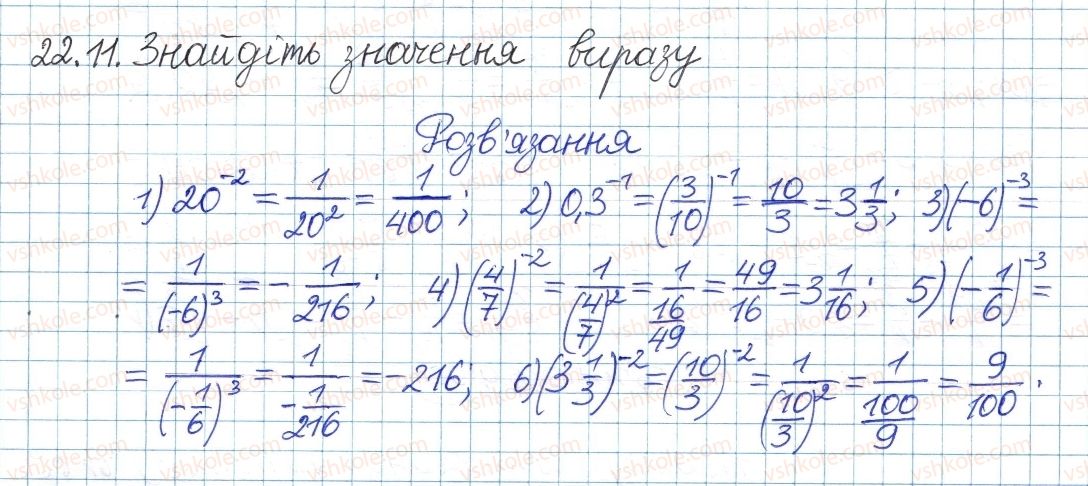 22.11. Знайдіть значення виразу
Розв'язання
1) 20^-2 = 1/20^2 = 1/400; 2) 0,3^-1 = (3/10)^-1 = 10/3 = 3 1/3; 3) (-6)^-3 =
= 1/(-6)^3 = - 1/216; 4) (4/7)^-2 = 1/(4/7)^2 = 1/(16/49) = 49/16 = 3 1/16; 5) (-1/6)^-3 =
= 1/(-1/6)^3 = 1/(-1/216) = -216; 6) (3 1/3)^-2 = (10/3)^-2 = 1/(10/3)^2 = 1/(100/9) = 9/100.